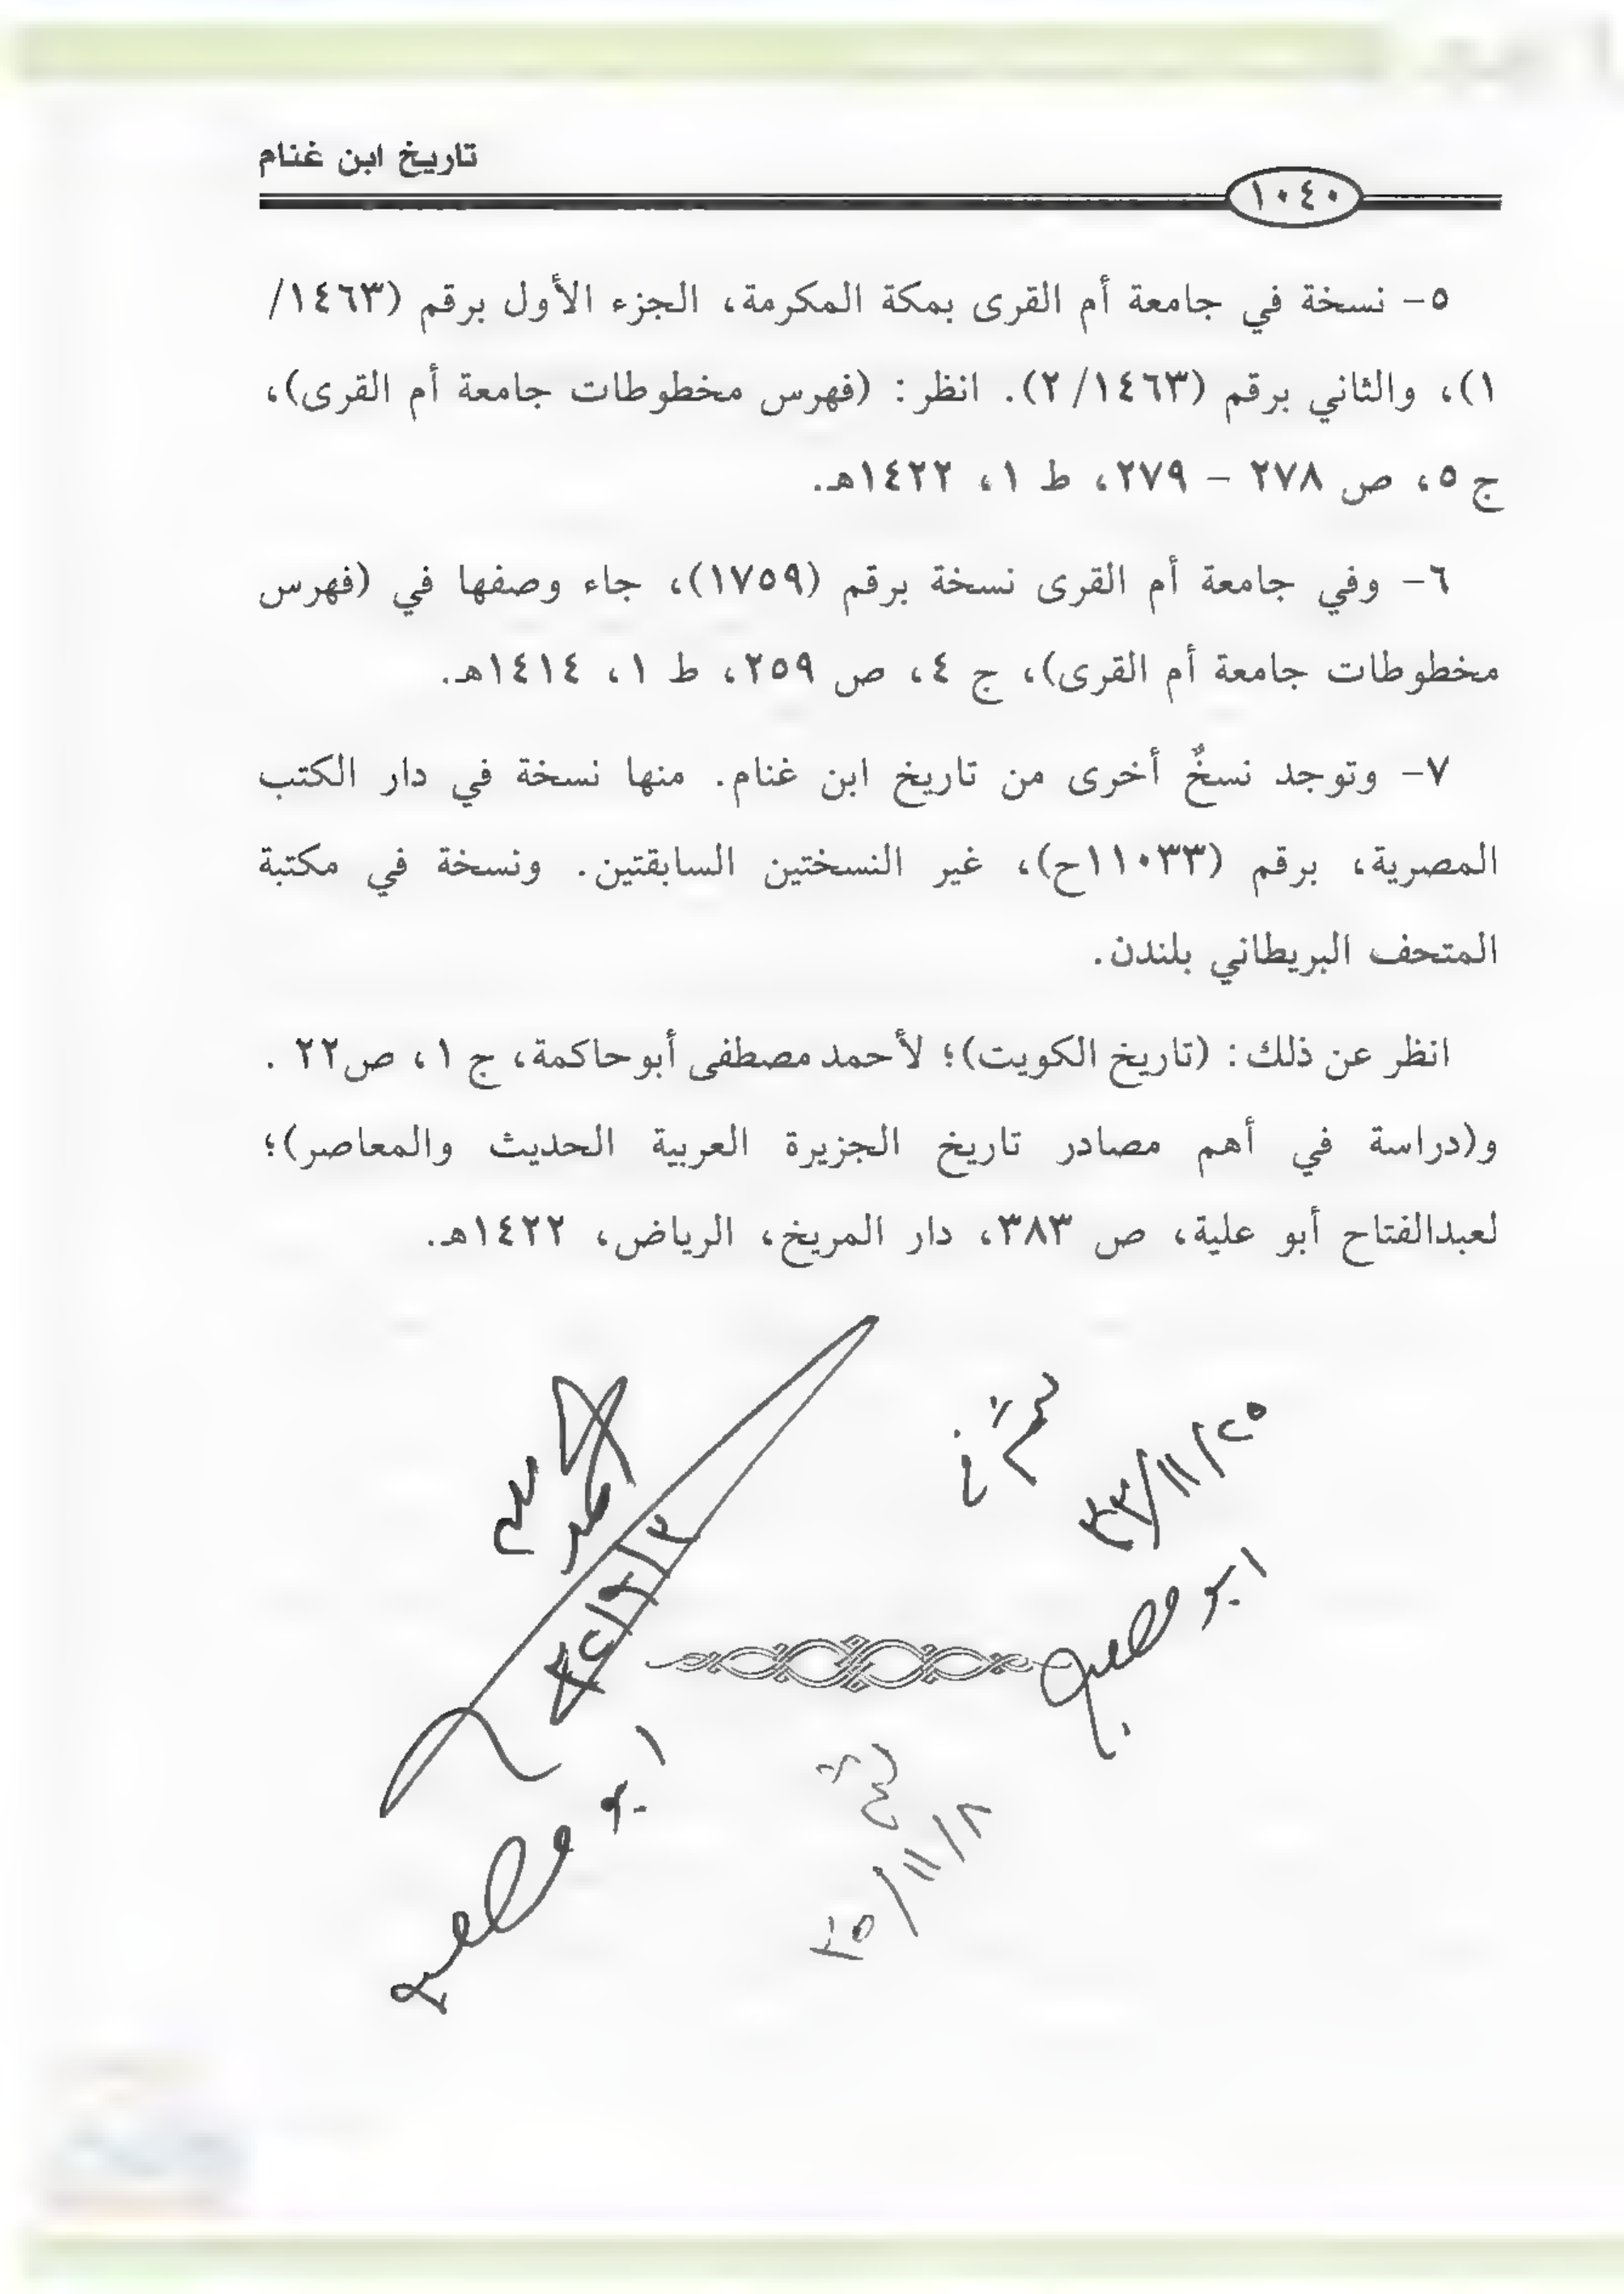 تاريخ ابن غنام
١٠٤٠
٥- نسخة في جامعة أم القرى بمكة المكرمة، الجزء الأول برقم (١٤٦٣/
١)، والثاني برقم (١٤٦٣/ ٢). انظر: (فهرس مخطوطات جامعة أم القرى)،
ج ٥، ص ٢٧٨ – ٢٧٩، ط ١، ١٤٢٢هـ.
٦- وفي جامعة أم القرى نسخة برقم (١٧٥٩)، جاء وصفها في (فهرس
مخطوطات جامعة أم القرى)، ج ٤، ص ٢٥٩، ط ١، ١٤١٤هـ.
٧- وتوجد نسخٌ أخرى من تاريخ ابن غنام. منها نسخة في دار الكتب
المصرية، برقم (١١٠٣٣ح)، غير النسختين السابقتين. ونسخة في مكتبة
المتحف البريطاني بلندن.
انظر عن ذلك: (تاريخ الكويت)؛ لأحمد مصطفى أبوحاكمة، ج ١، ص٢٢ .
و(دراسة في أهم مصادر تاريخ الجزيرة العربية الحديث والمعاصر)؛
لعبدالفتاح أبو علية، ص ٣٨٣، دار المريخ، الرياض، ١٤٢٢هـ.